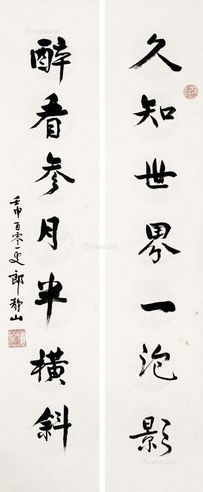 久知世界一泡影
醉看参月半橫斜
壬申百零一叟郎静山